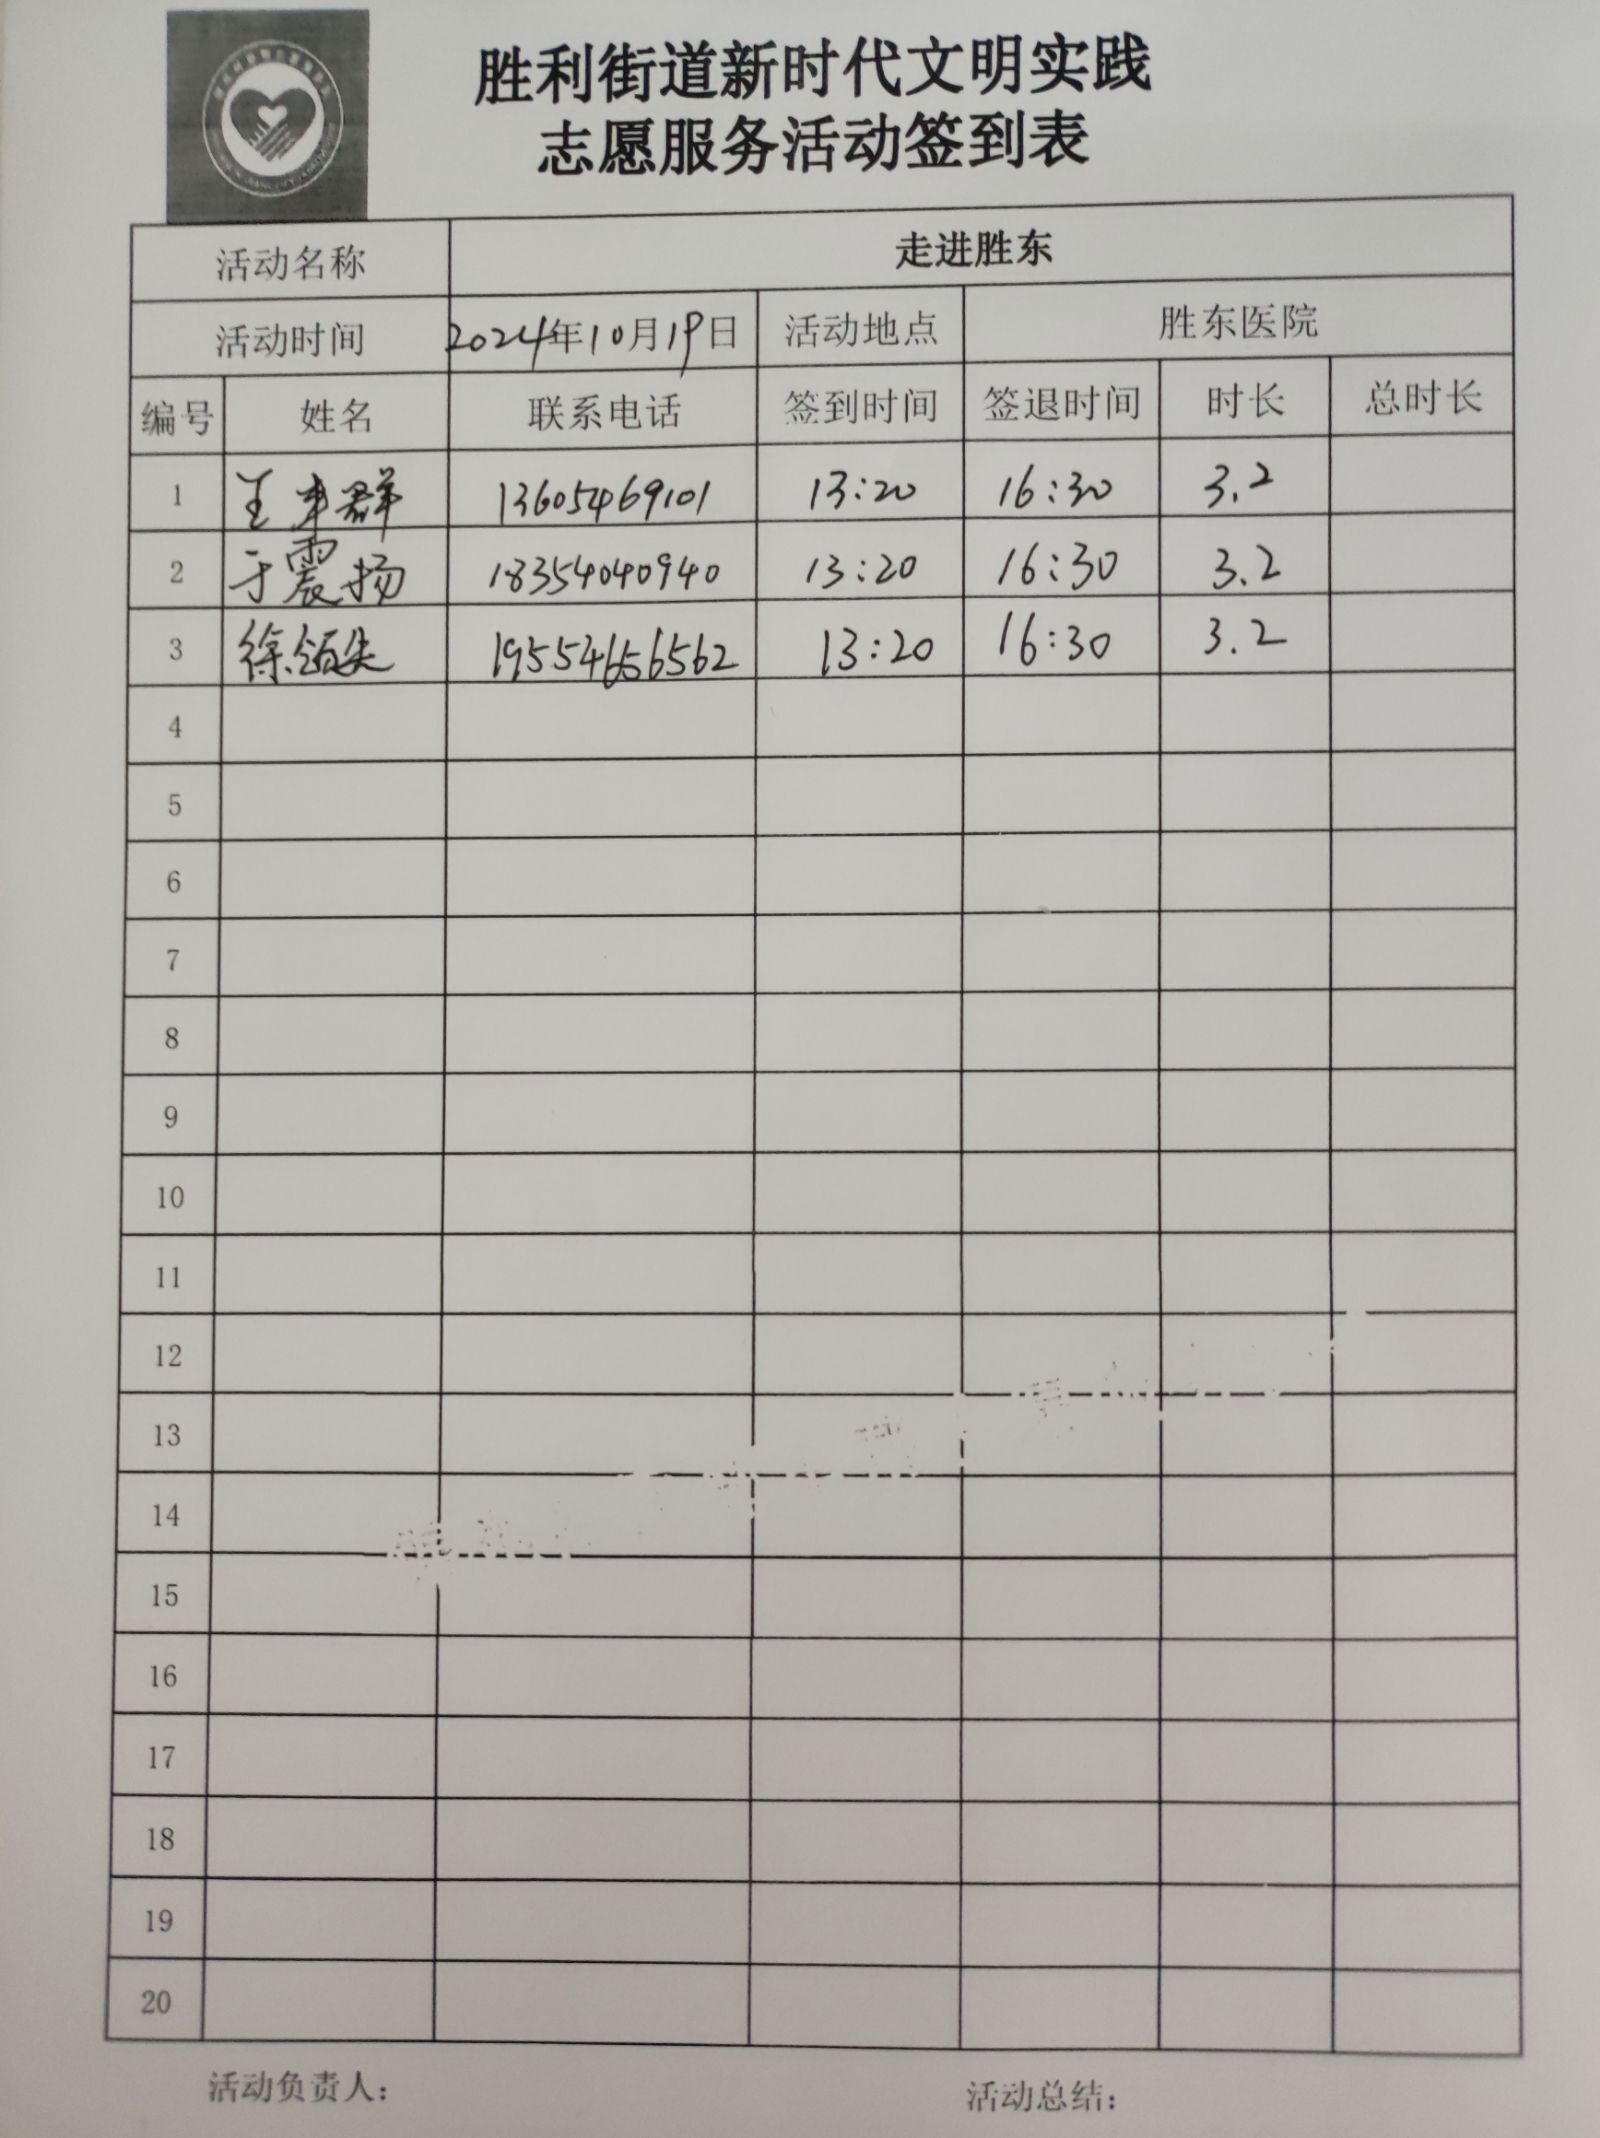 胜利街道新时代文明实践
志愿服务活动签到表
活动名称 走进胜东
活动时间 2024年10月19日 活动地点 胜东医院
编号 姓名 联系电话 签到时间 签退时间 时长 总时长
1 群 13605469101 13:20 16:30 3.2
2 于震扬 18354040940 13:20 16:30 3.2
3 徐 19554656562 13:20 16:30 3.2
4
5
6
7
8
9
10
11
12
13
14
15
16
17
18
19
20
活动负责人： 活动总结：